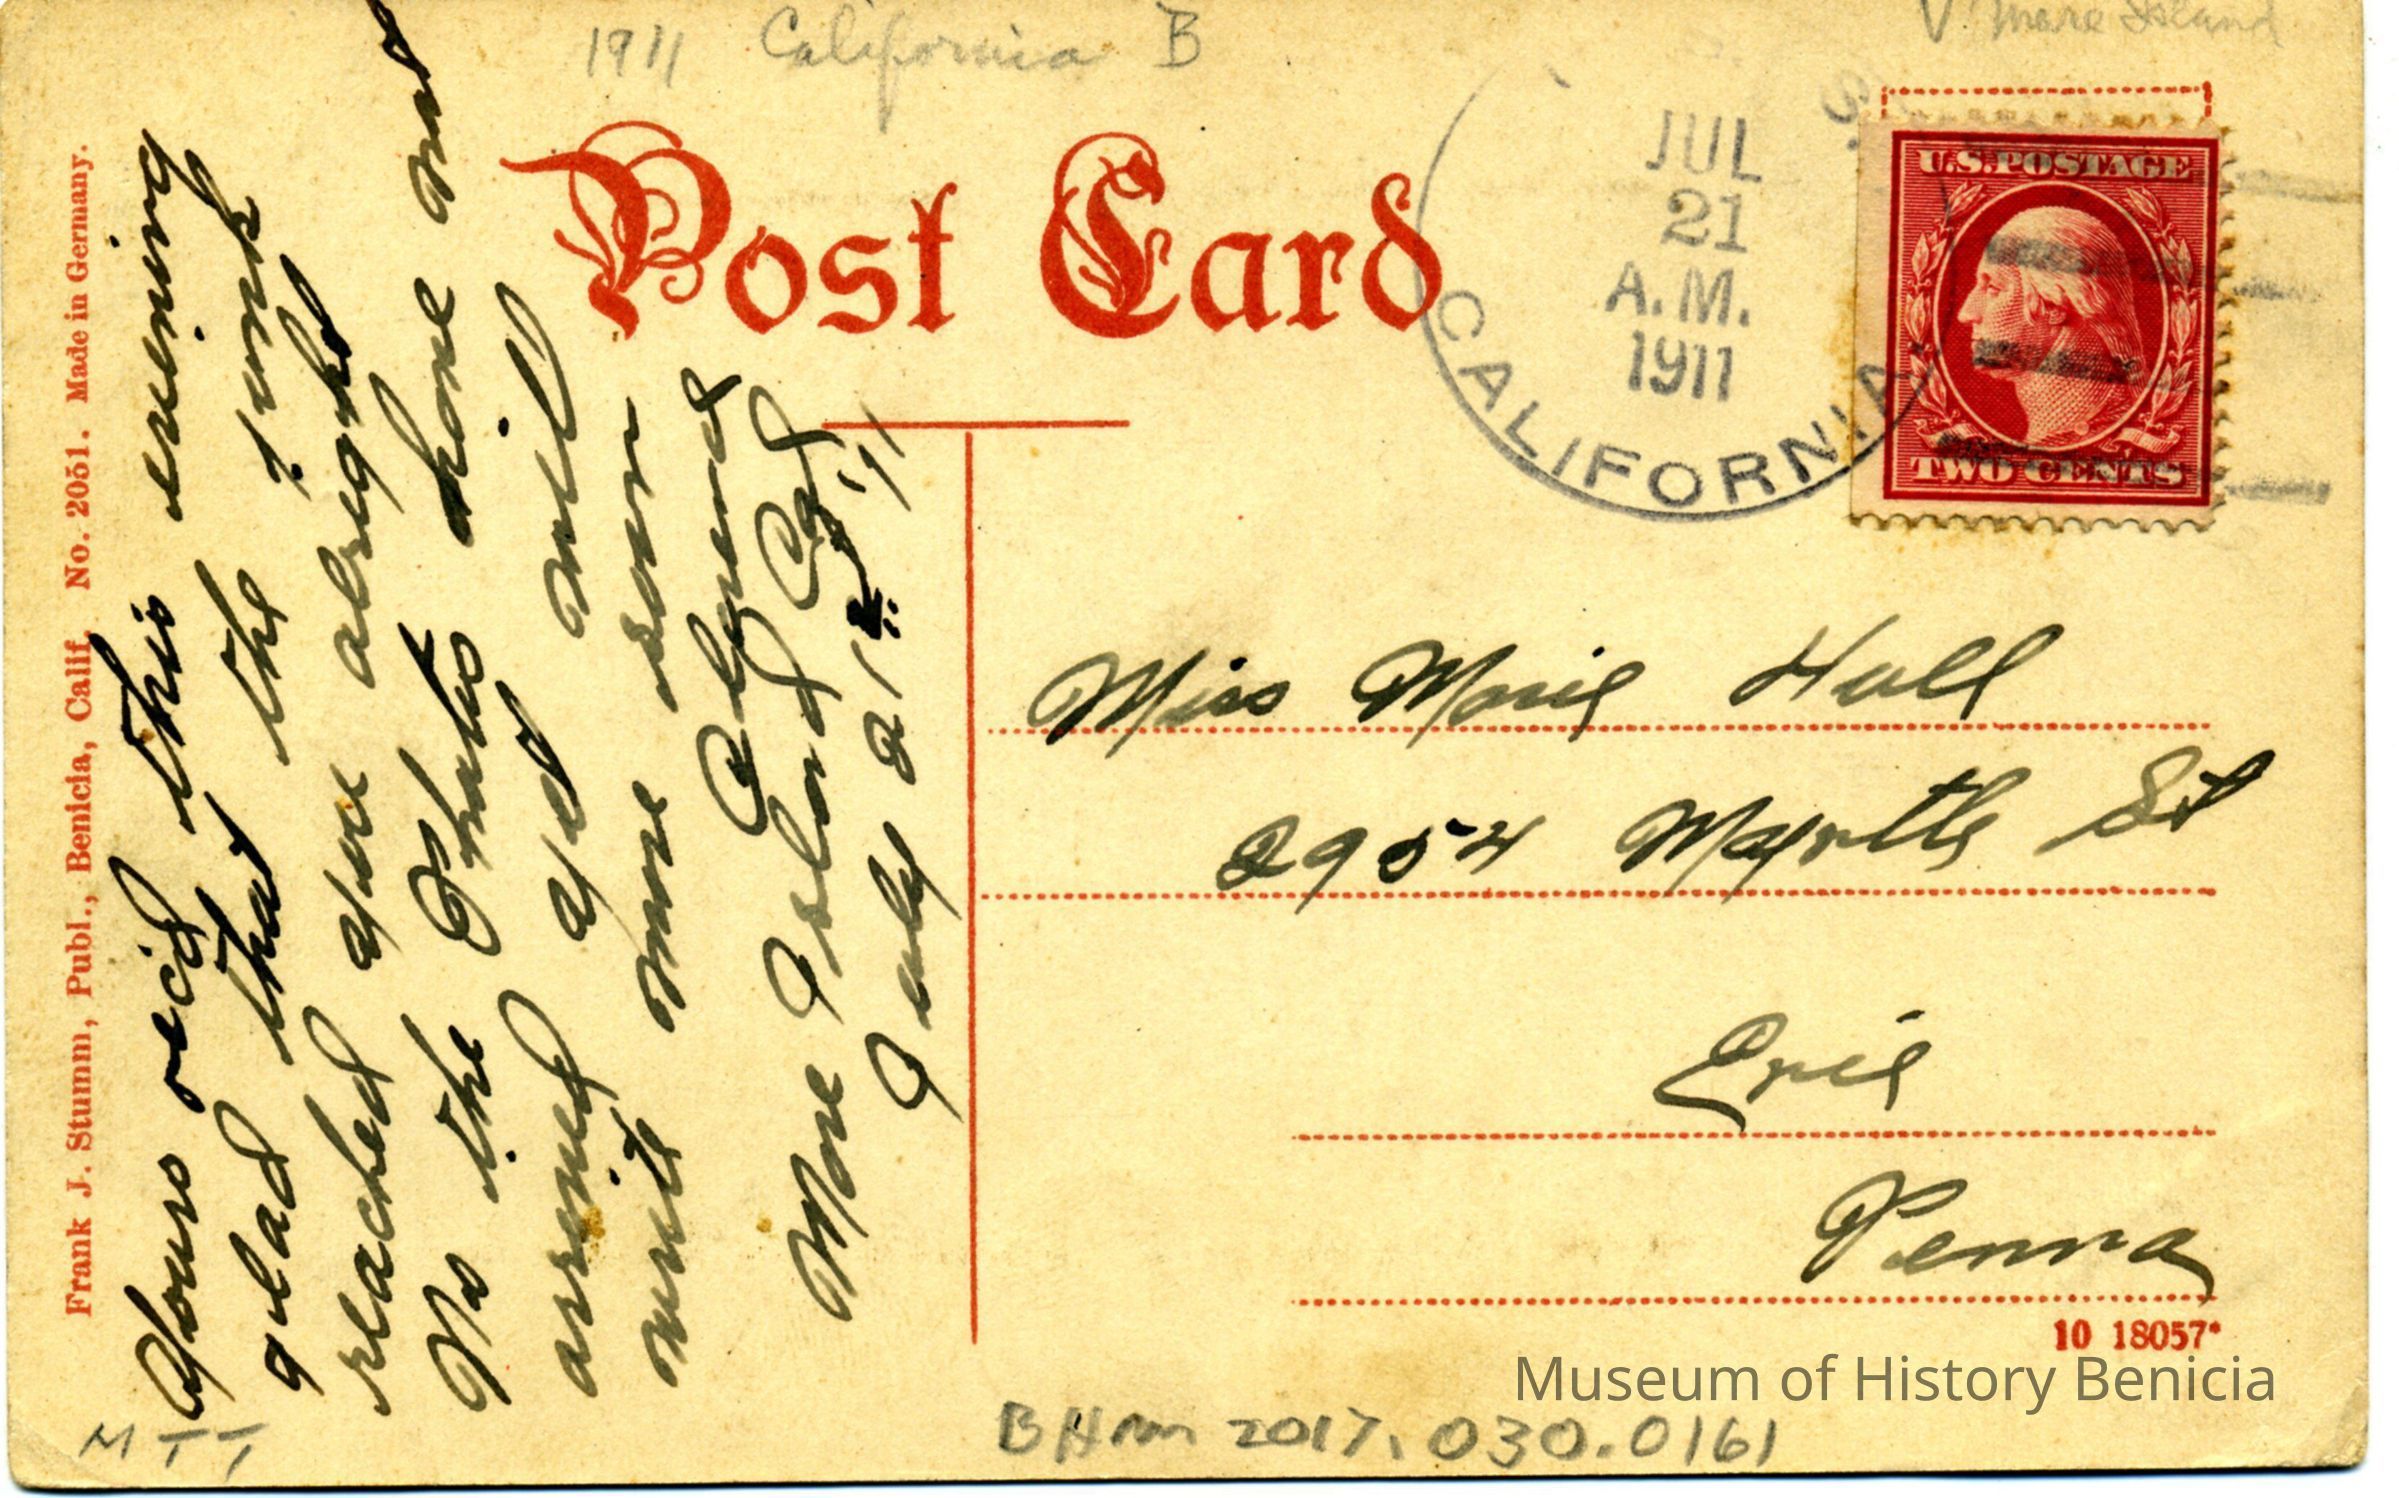 1911 California B
V. Mare Island
Post Card
JUL
21
A.M.
1911
CALIFORNIA
U.S. POSTAGE
TWO CENTS
Frank J. Stumm, Publ., Benicia, Calif. No. 2051. Made in Germany.
Yours recd this evening
glad that the trunk
reached you alright
No the Photos have not
arrived yet will
write more soon
Clyde
Mare Island Cal
July 21st '11
Miss Marie Hull
2954 Myrtle St
Erie
Penna
10 18057*
Museum of History Benicia
BHM 2017.030.0161